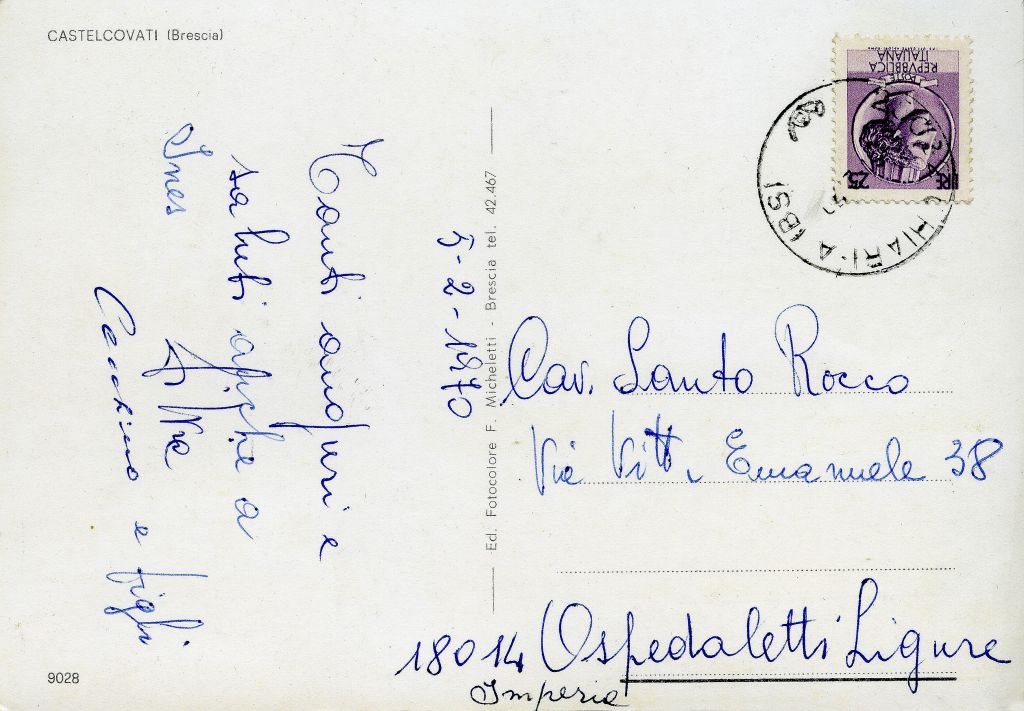 CASTELCOVATI (Brescia)
5-2-1970
Tanti auguri e
saluti anche a
Ines
e figli
Ed. Fotocolore F. Micheletti - Brescia tel. 42.467
REPVBBLICA
ITALIANA
POSTE
25
LIRE
CHIARI·A (BS)
Cav. Santo Rocco
Via Vitt. Emanuele 38
18014 Ospedaletti Ligure
Imperia
9028